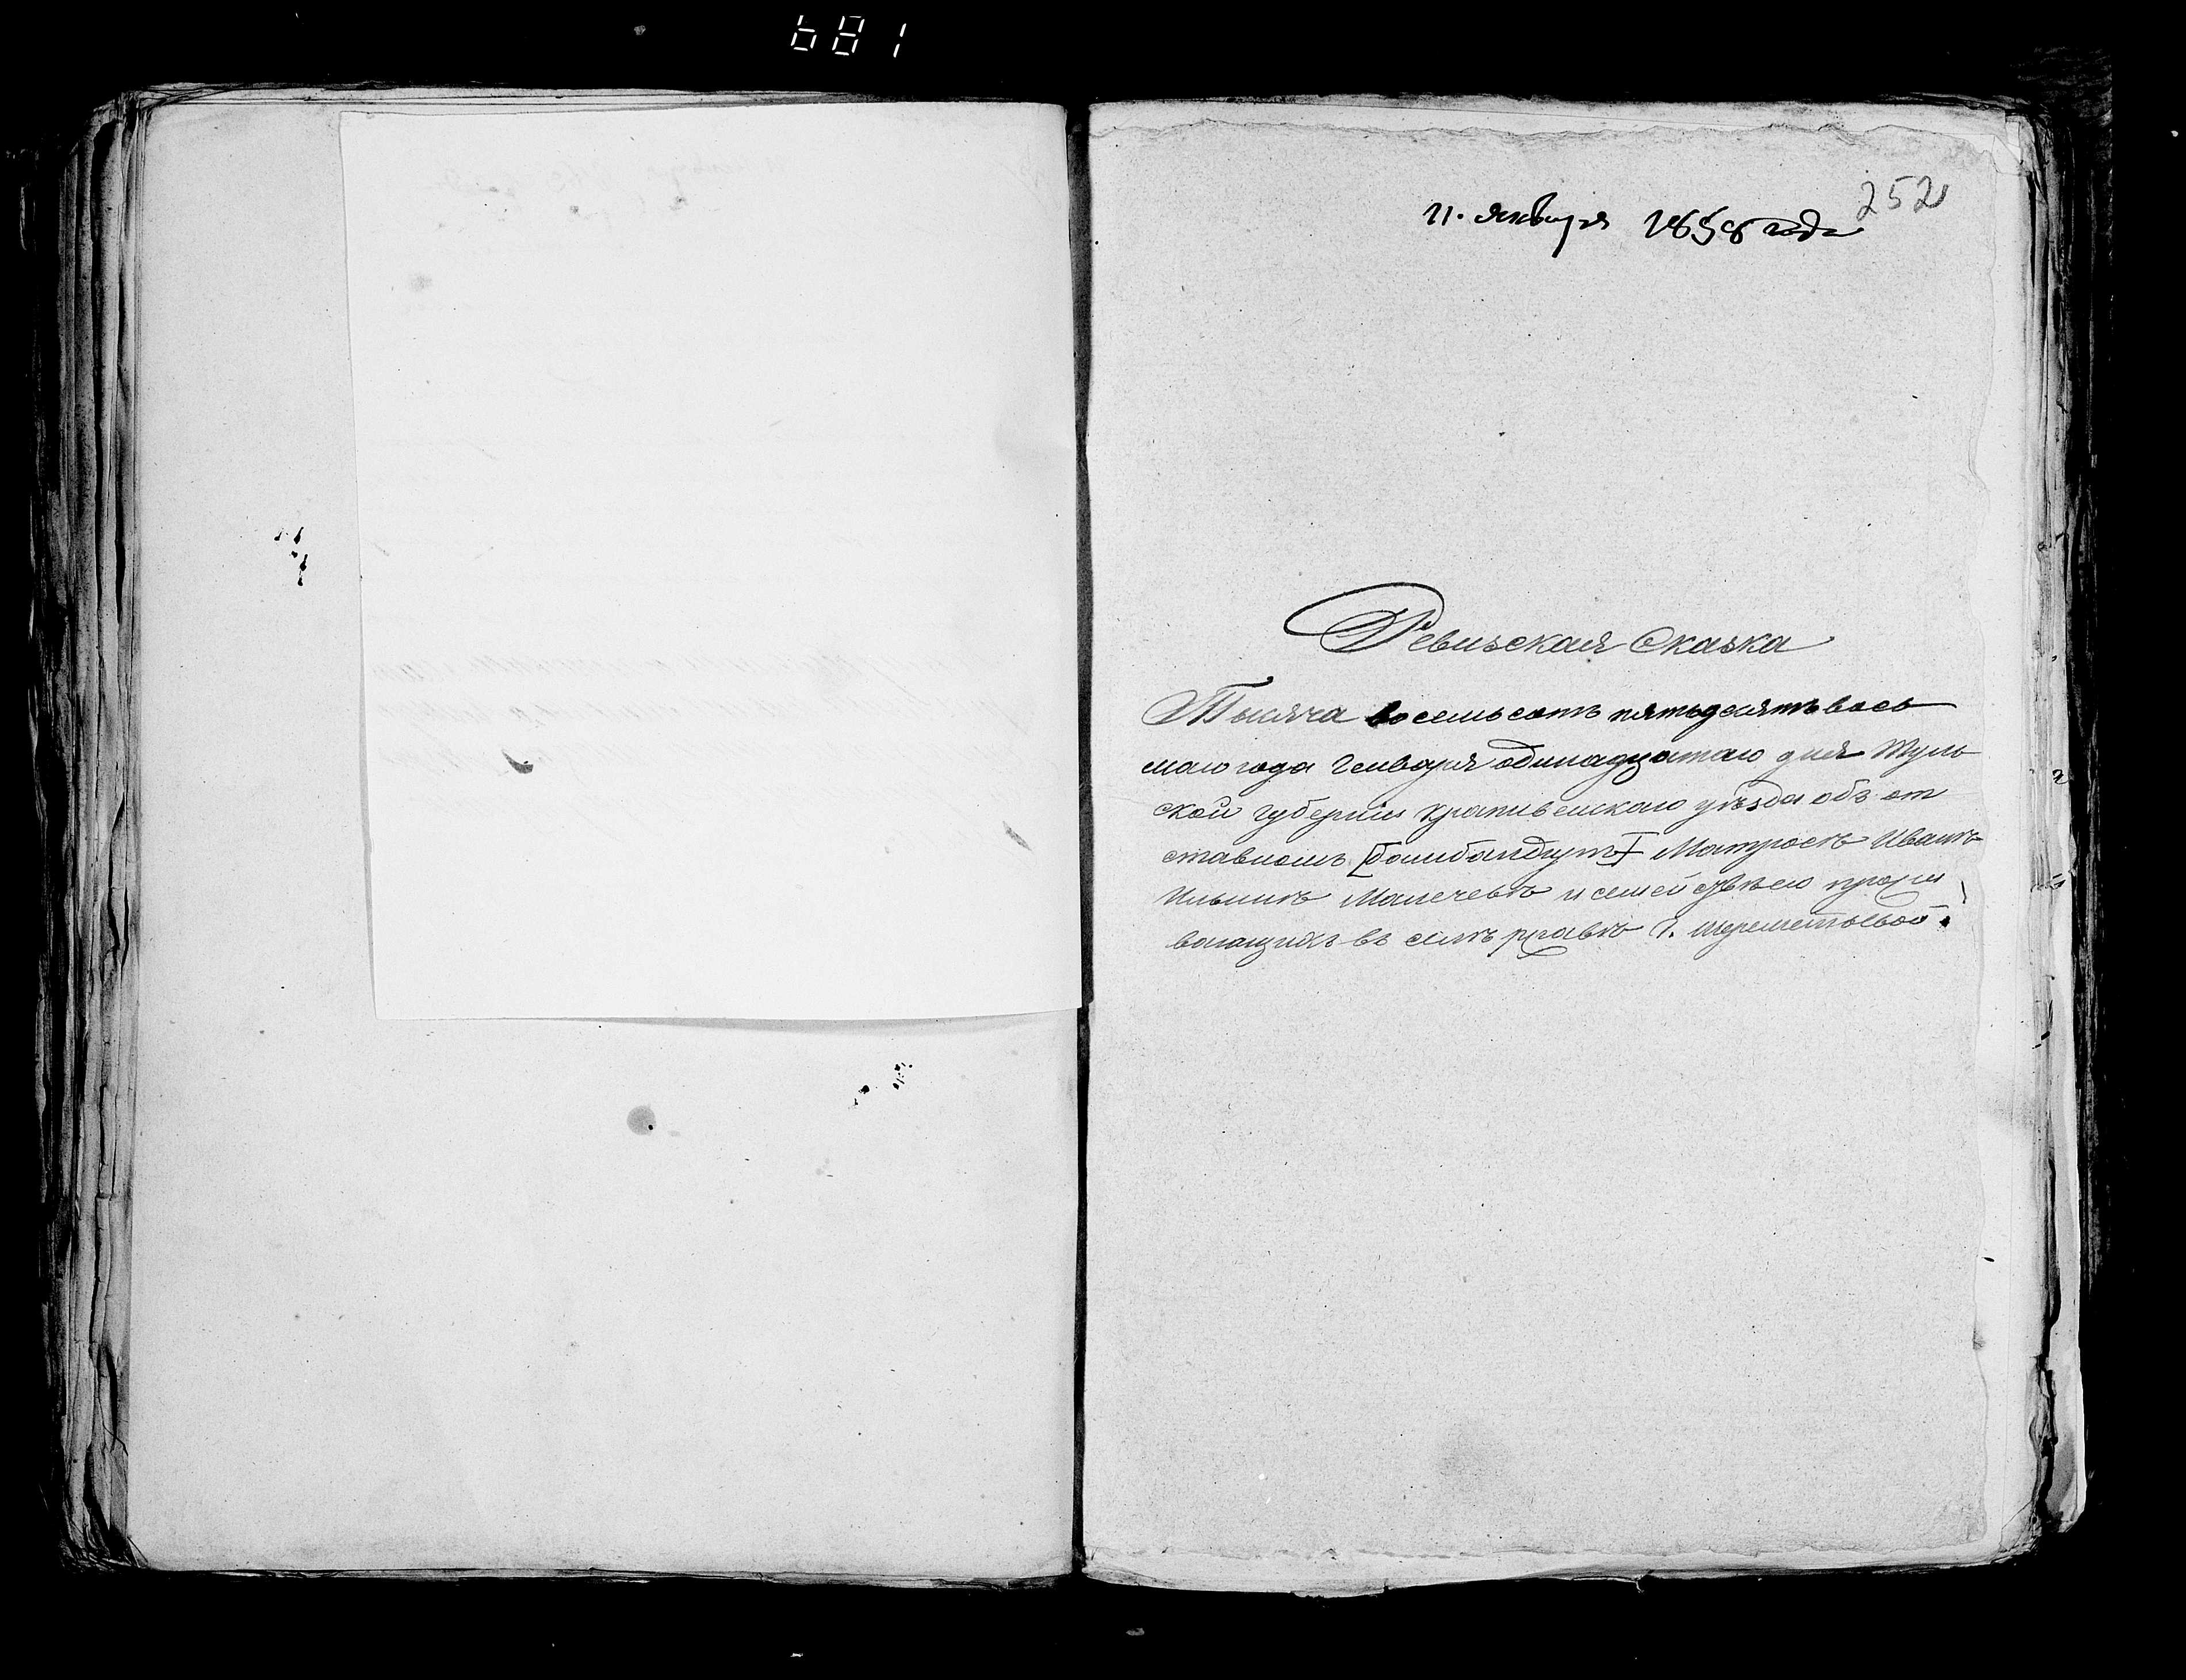 681
252
11. января 1858 года
Ревизская Сказка
Тысяча восемьсотъ пятьдесятъ вось
маго года Генваря одинадцатаго дня Туль
ской губернiи Крапивенскаго уѣзда объ от
ставномъ Матросѣ Иванѣ
Ильинѣ и семействѣ его прожи
вающихъ въ селѣ г. Шереметьевой